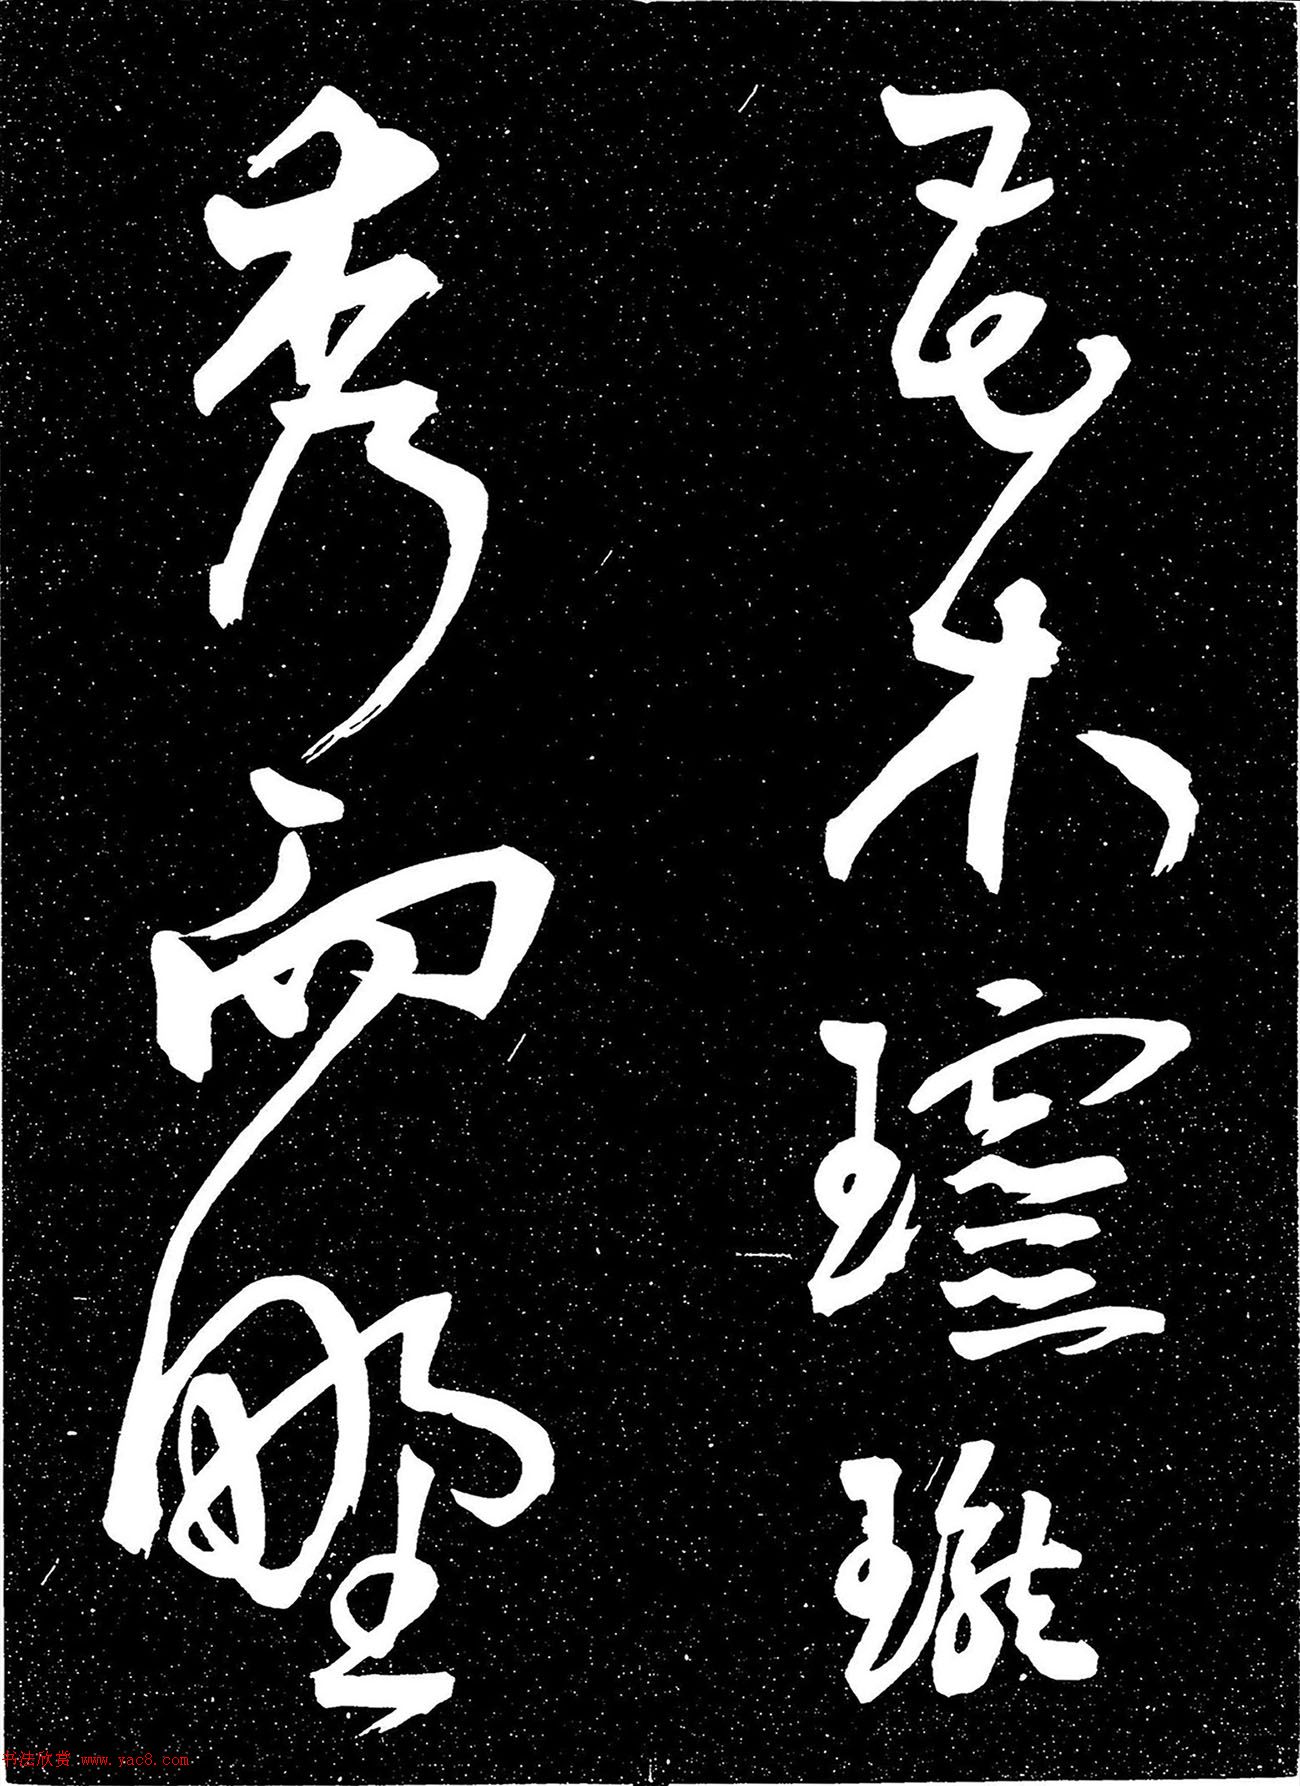 木瓏
秀而野
书法欣赏 www.yac8.com